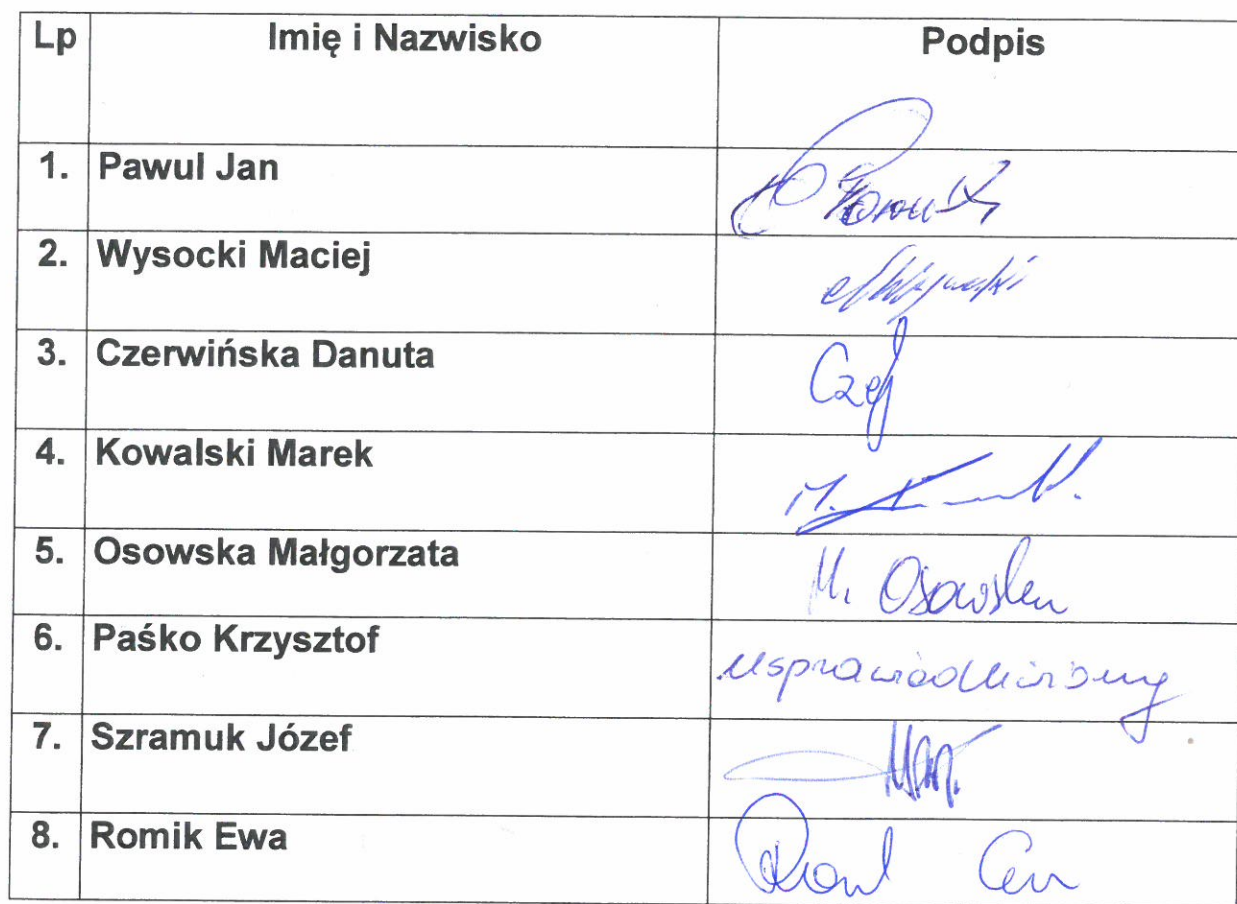 Lp Imię i Nazwisko Podpis
1. Pawul Jan
2. Wysocki Maciej
3. Czerwińska Danuta
4. Kowalski Marek M.
5. Osowska Małgorzata M. Osowska
6. Paśko Krzysztof usprawiedliwiony
7. Szramuk Józef
8. Romik Ewa